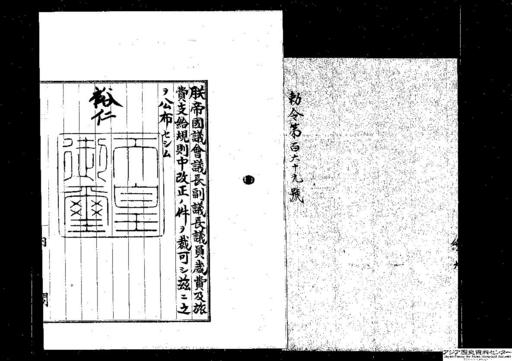 勅令第百六十九號
朕帝國議會議長副議長議員歳費及旅
費支給規則中改正ノ件ヲ裁可シ茲ニ之
ヲ公布セシム
裕仁
天皇
御璽
内
閣
アジア歴史資料センター